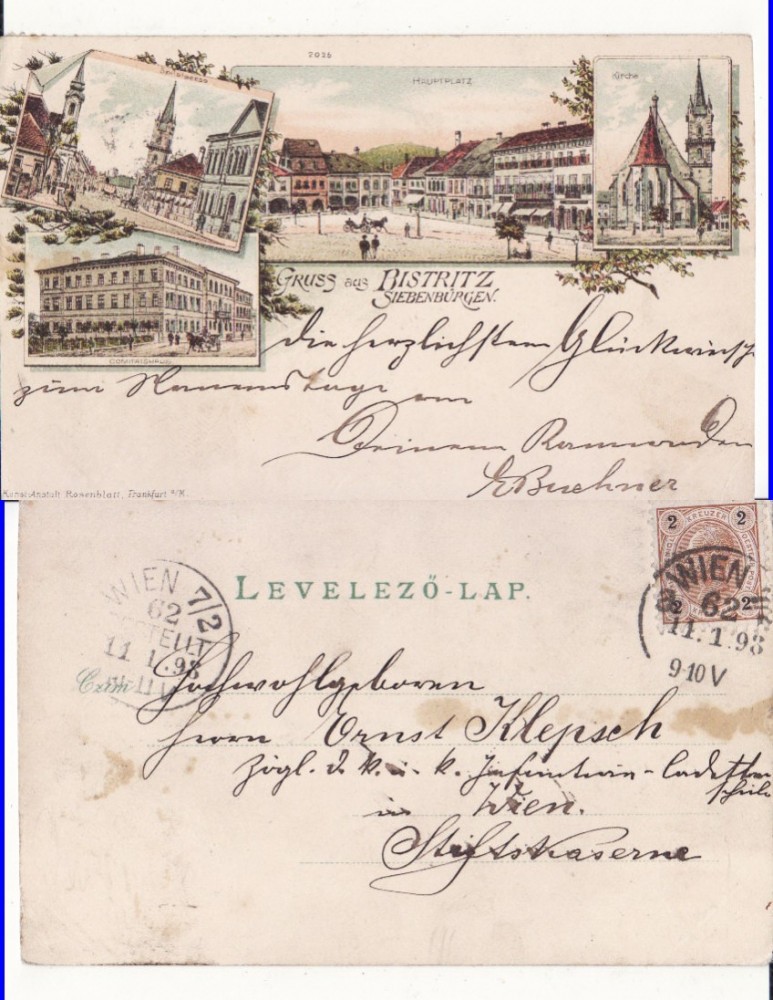 2026
HAUPTPLATZ
Kirche
COMITATSHAUS
GRUSS aus BISTRITZ
SIEBENBÜRGEN.
die herzlichsten Glückwünsche
zum Namenstage von
Deinem Kameraden
Buchner
Kunst-Anstalt Rosenblatt, Frankfurt a/M.
2 KREUZER 2
2 2
WIEN
62
11.1.98
9-10V
WIEN 7/2
62
BESTELLT
11.1.98
LEVELEZŐ-LAP.
Czim
Hochwohlgeboren
Herrn Ernst Klepsch
Zögl. d. k. u. k. Infanterie-Cadetten
schule
in Wien.
Stiftskaserne